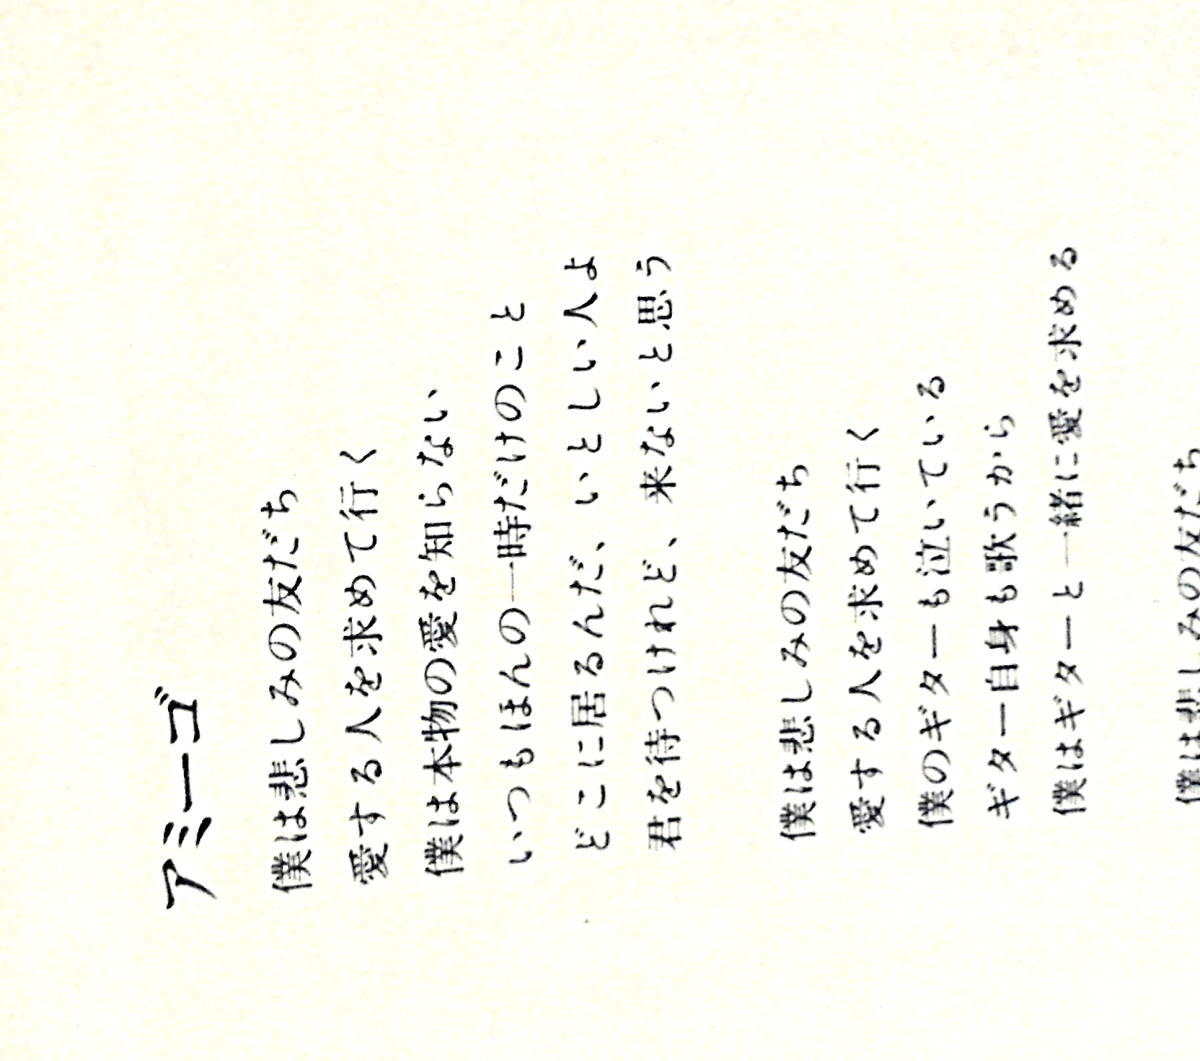 アミーゴ
僕は悲しみの友だち
愛する人を求めて行く
僕は本物の愛を知らない
いつもほんの一時だけのこと
どこに居るんだ、いとしい人よ
君を待つけれど、来ないと思う
僕は悲しみの友だち
愛する人を求めて行く
僕のギターも泣いている
ギター自身も歌うから
僕はギターと一緒に愛を求める
僕は悲しみの友だち